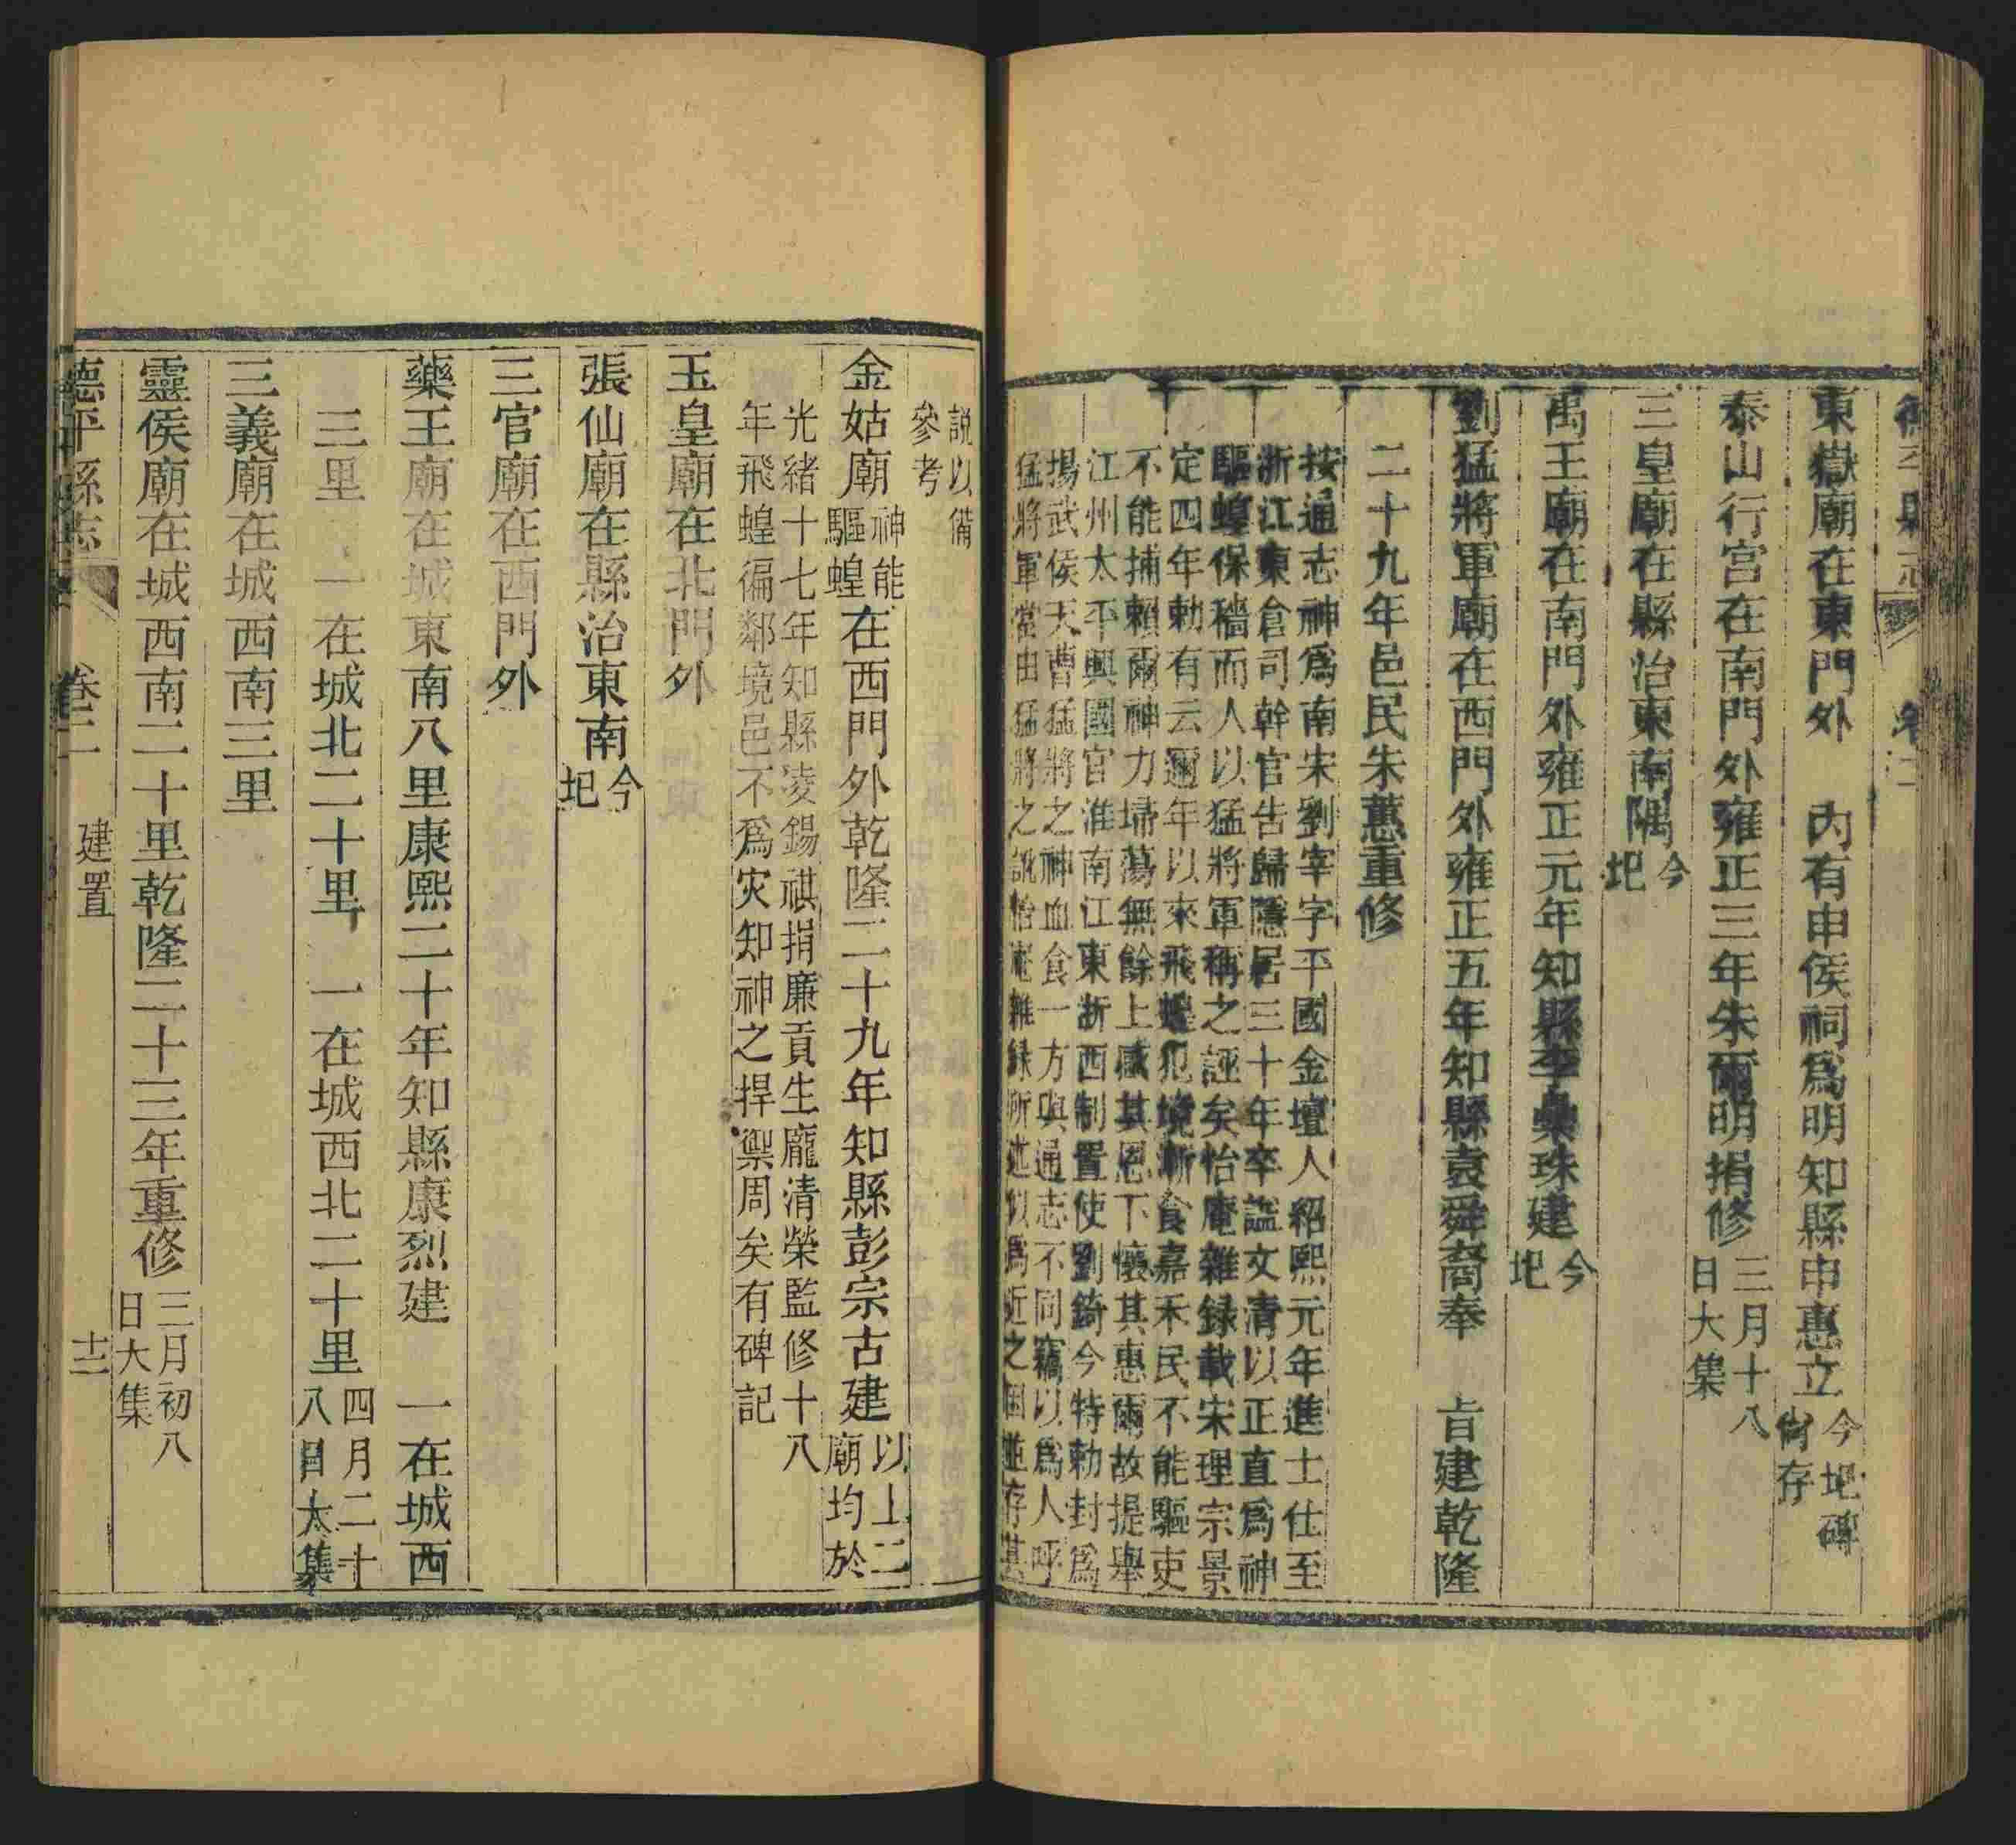 德平縣志 卷二
東嶽廟在東門外 內有申侯祠爲明知縣申惠立今圮碑尚存
泰山行宮在南門外雍正三年朱爾明捐修三月十八日大集
三皇廟在縣治東南隅今圮
禹王廟在南門外雍正元年知縣李彙珠建今圮
劉猛將軍廟在西門外雍正五年知縣袁舜裔奉 旨建乾隆
二十九年邑民朱蕙重修
按通志神爲南宋劉宰字平國金壇人紹熙元年進士仕至
浙江東倉司幹官告歸隱居三十年卒諡文清以正直爲神
驅蝗保穡而人以猛將軍稱之誣矣怡庵雜録載宋理宗景
定四年勅有云邇年以來飛蝗犯境漸食嘉禾民不能驅吏
不能捕賴爾神力埽蕩無餘上感其恩下懷其惠爾故提舉
江州太平興國宮淮南江東浙西制置使劉錡今特勅封爲
揚武侯天曹猛將之神血食一方與通志不同竊以爲人呼
猛將軍當由猛將之說怡庵雜録所述似爲近之因並存其
説以備
參考
金姑廟神能驅蝗在西門外乾隆二十九年知縣彭宗古建以上二廟均於
光緒十七年知縣凌錫祺捐廉貢生龐清榮監修十八
年飛蝗徧鄰境邑不爲灾知神之捍禦周矣有碑記
玉皇廟在北門外
張仙廟在縣治東南今圮
三官廟在西門外
藥王廟在城東南八里康熙二十年知縣康烈建 一在城西
三里 一在城北二十里 一在城西北二十里四月二十八日大集
三義廟在城西南三里
靈侯廟在城西南二十里乾隆二十三年重修三月初八日大集
德平縣志 卷二 建置 十二